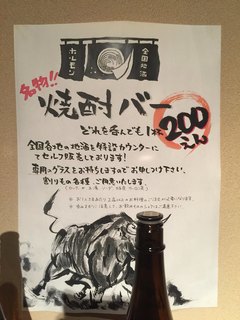 ホルモン
全国地酒
名物!!
焼酎バー
どれを呑んでも1杯200えん
全国各地の地酒を特設カウンターに
てセルフ販売しております!
専用のグラスをお持ちしますのでお申しつけ下さい。
割りもの各種、ご用意いたします。